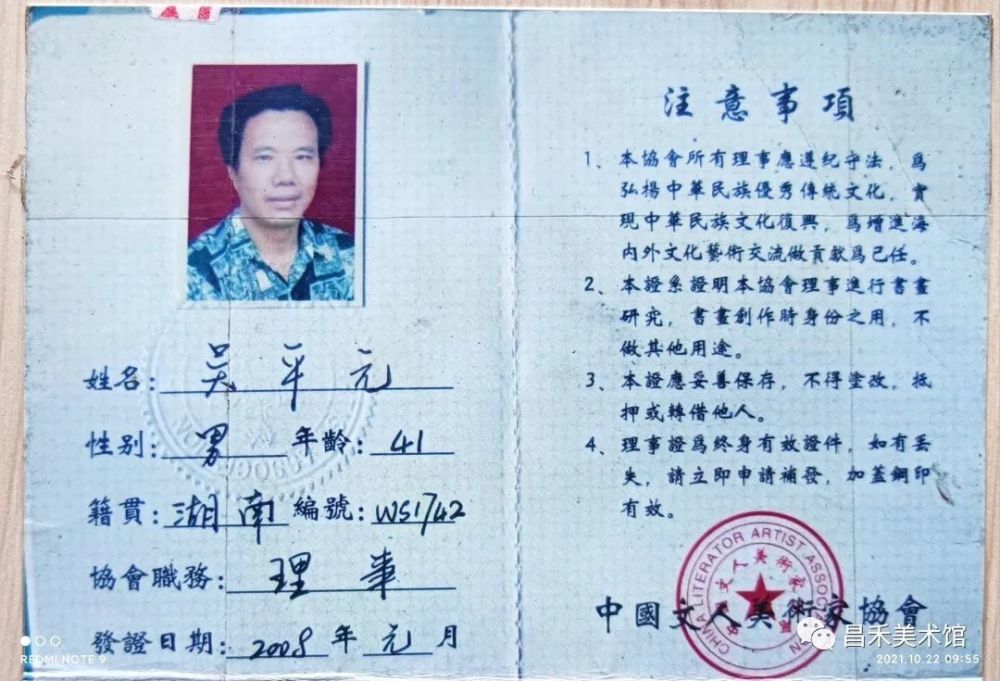 姓名：吴平元
性别：男 年齡：41
籍貫：湖南 編號：WS1742
協會職務：理事
發證日期：2008年元月
注意事項
1、本協會所有理事應遵紀守法，爲
弘揚中華民族優秀傳統文化，實
現中華民族文化復興，爲增進海
内外文化藝術交流做貢獻爲己任。
2、本證系證明本協會理事進行書畫
研究，書畫創作時身份之用，不
做其他用途。
3、本證應妥善保存，不得塗改，抵
押或轉借他人。
4、理事證爲終身有效證件，如有丢
失，請立即申請補發，加蓋鋼印
有效。
中國文人美術家協會
CHINA LITERATOR ARTIST ASSOCIATION
中國文人美術家協會
昌禾美术馆
REDMI NOTE 9
2021.10.22 09:55